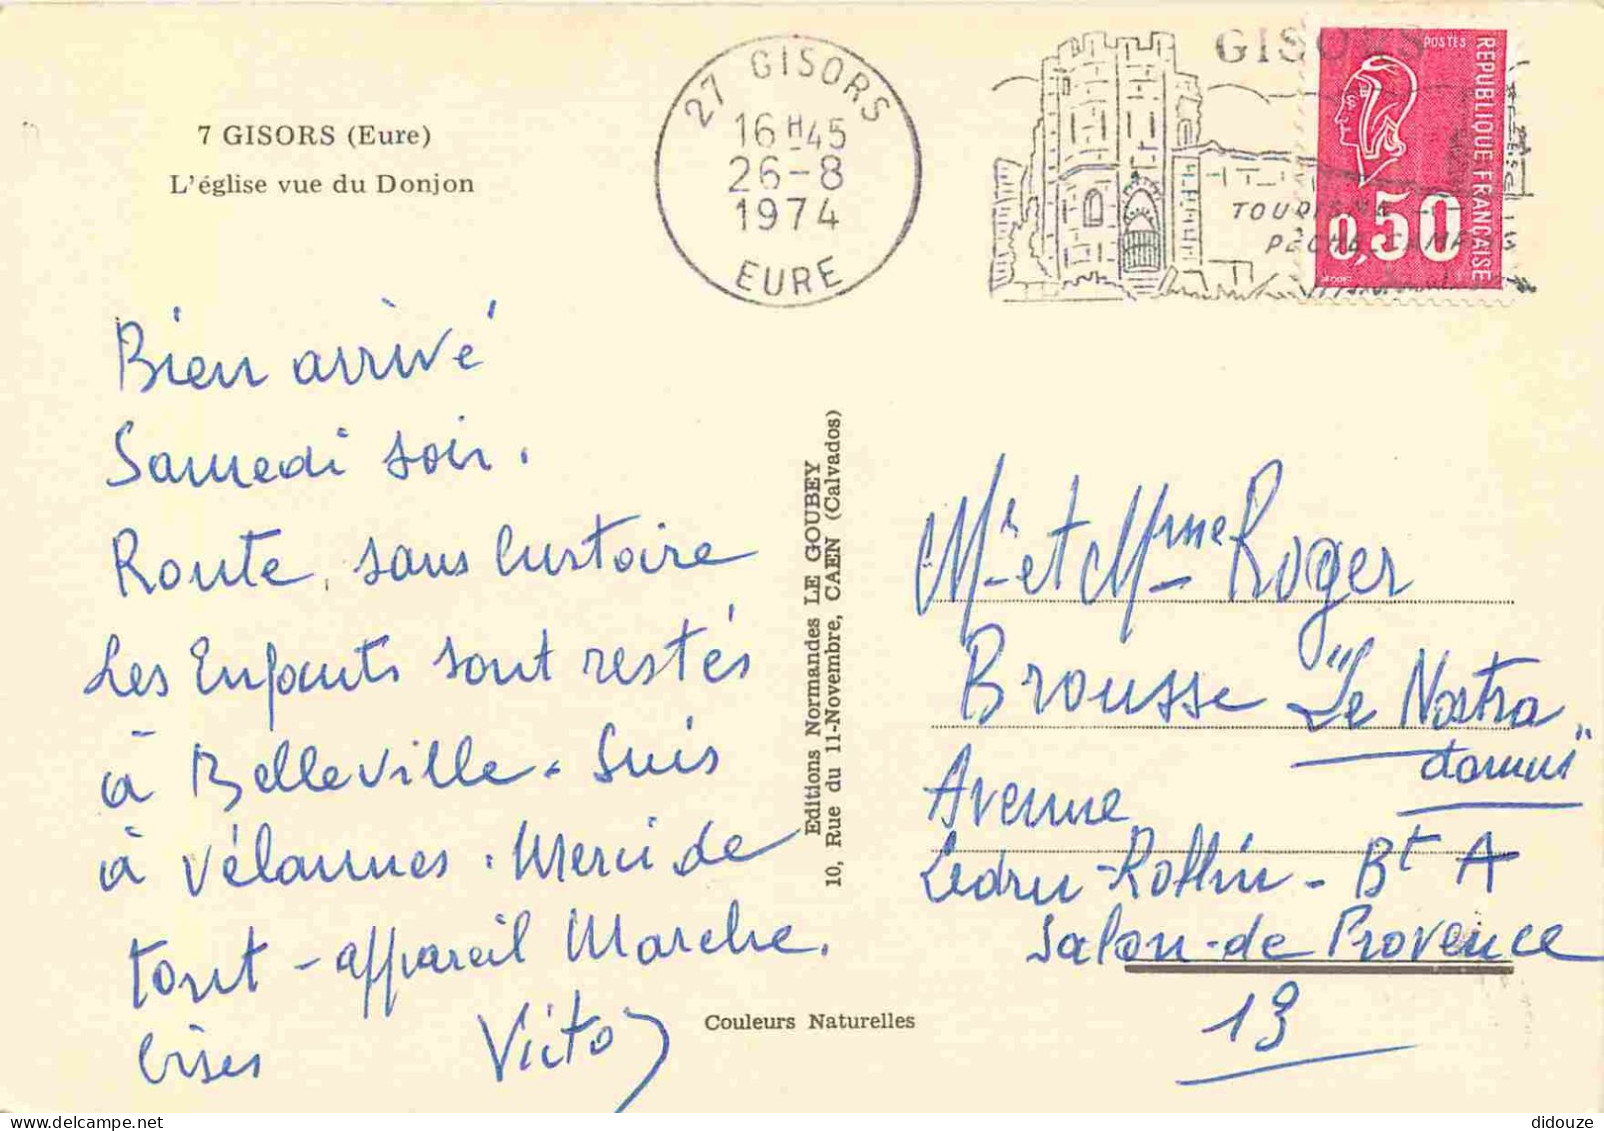 7 GISORS (Eure)
L'église vue du Donjon
27 GISORS
16H45
26-8
1974
EURE
GISORS
TOURISME
PÊCHE_CAMPING
POSTES
REPUBLIQUE FRANÇAISE
0,50
Bien arrivé
Samedi soir.
Route, sans lustoire
Les Enfants sont restés
à Belleville. Suis
à Vélannes. Merci de
tout - appareil Marche.
Bises Victor
Editions Normandes LE GOUBEY
10, Rue du 11-Novembre, CAEN (Calvados)
Couleurs Naturelles
Mr et Mme Roger
Brousse "Le Nostra
damus"
Avenue
Ledru-Rollin - Bt A
Salon-de Provence
13
didouze